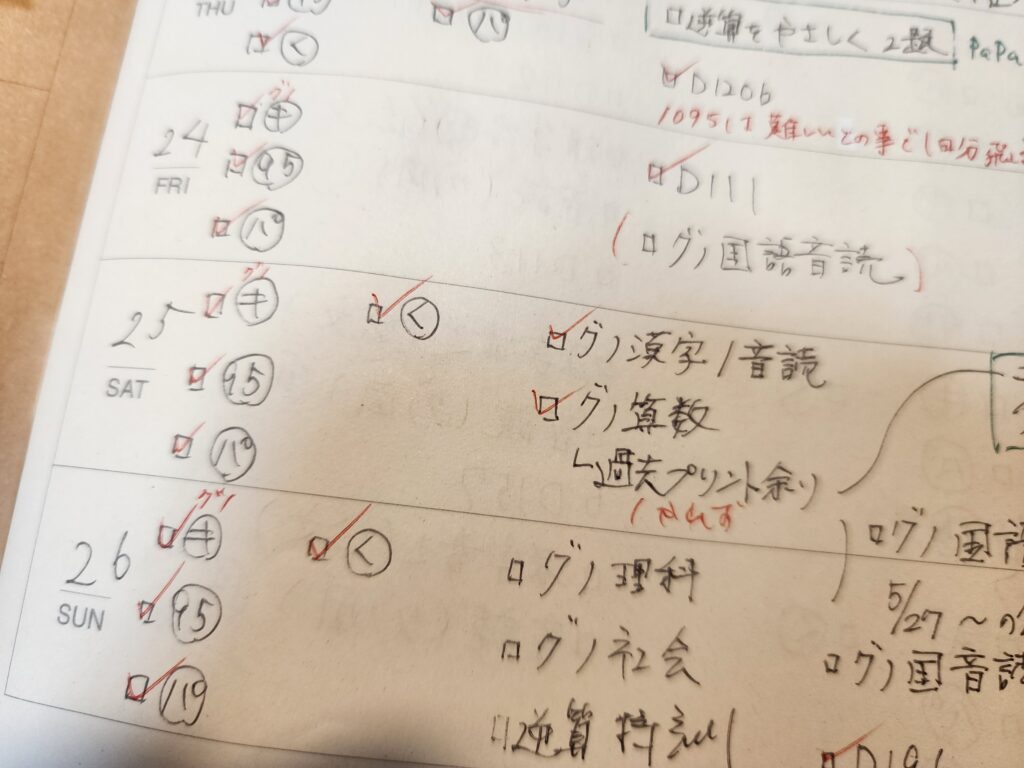 THU
く
パ
逆算をやさしく 2題
papa
D120b
1095は難しいとの事で1回分
24
FRI
グノ
キ
95
パ
D111
(グノ国語音読)
25
SAT
グノ
キ
く
95
パ
グノ漢字/音読
グノ算数
↳過去プリント余り
やれず
26
SUN
グノ
キ
く
95
パ
グノ理科
グノ社会
逆算特訓
グノ国語
5/27〜の
グノ国音読
D191